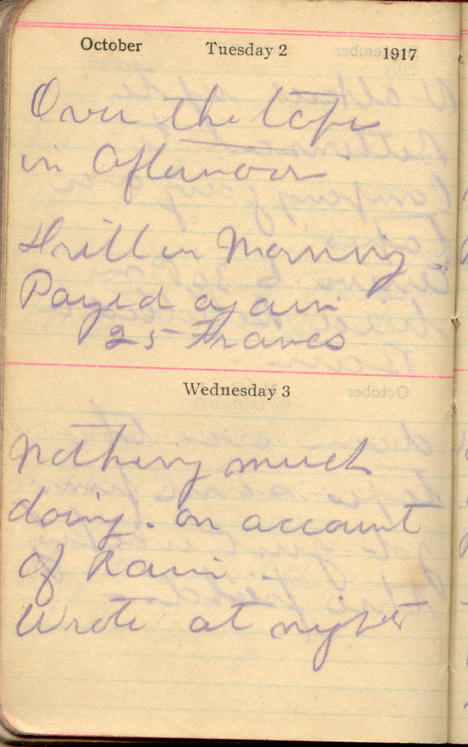 October Tuesday 2 1917
Over the tops
in Afternoon
Drill in Morning
Payed again
25 Francs
Wednesday 3
Nothing much
doing. on account
of Rain
Wrote at night